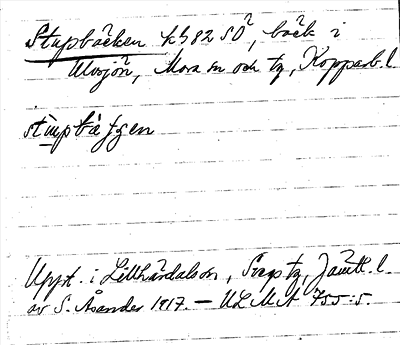 Stupbäcken kh 82 SO², bäck i
Mosjön, Mora sn och tg, Kopparb. l.
stupbäƷen
Uppt. i Lillhärdals sn, Svegs tg, Jämtl. l.
av S. Åsander 1917. — ULMA 455:5.